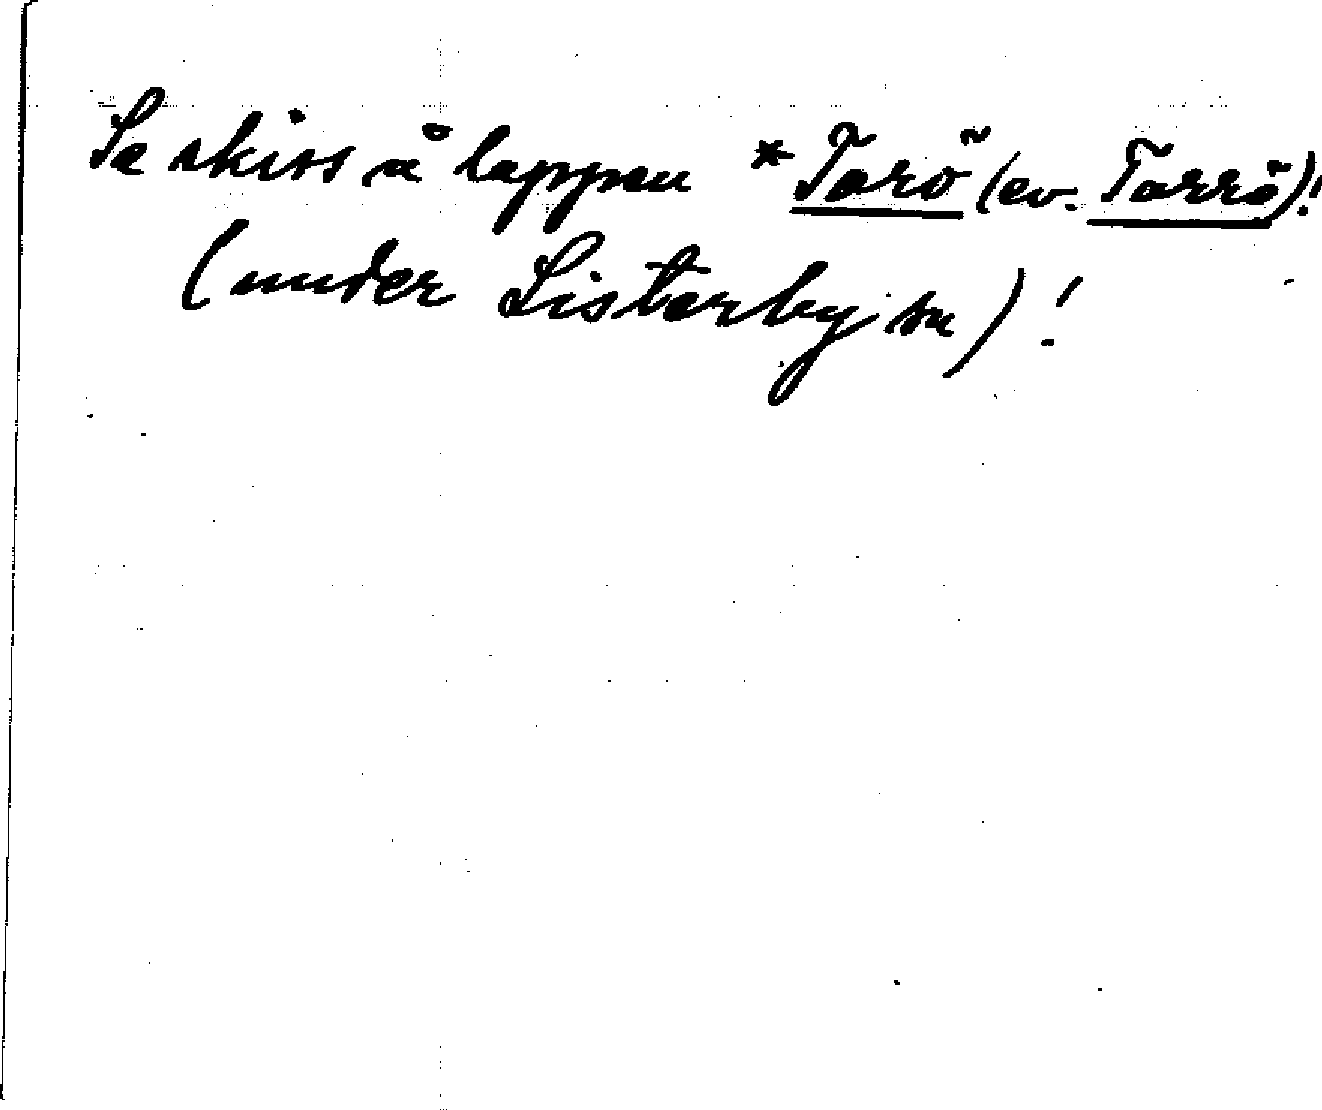 Se skiss å lappen *Torö (ev. Torrö)!
(under Listerby sn)!